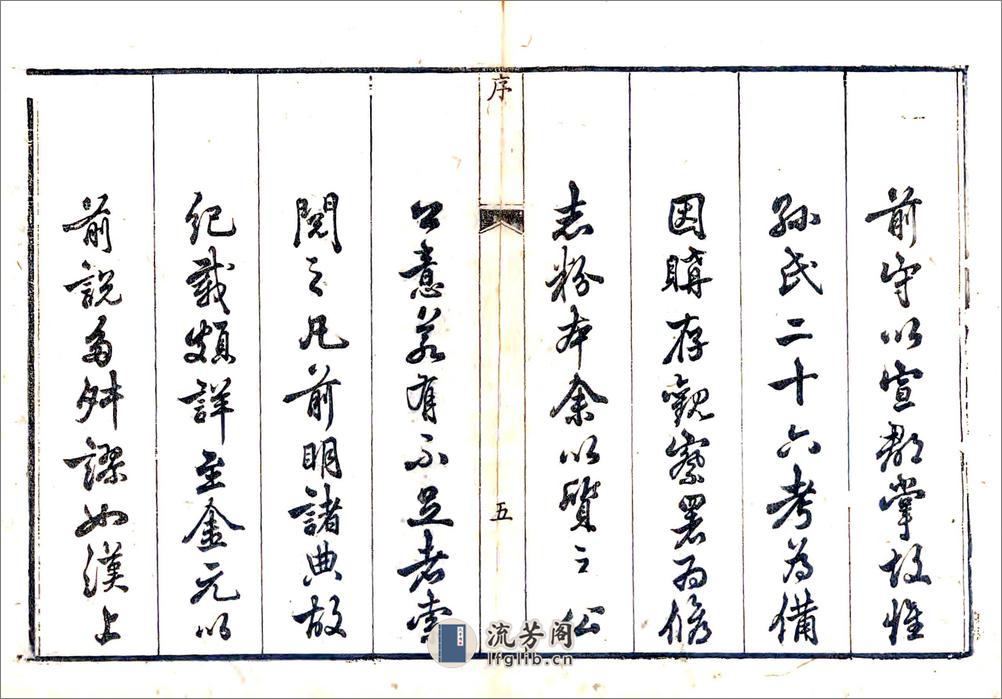 前守以宣郡掌故惟
孫氏二十六考為備
因購存觀察署為修
志粉本余以質之公
序
五
公意若有不足者索
閱之凡前明諸典故
紀載頗詳至金元以
前說多舛謬如漢上
流芳阁
lfglib.cn